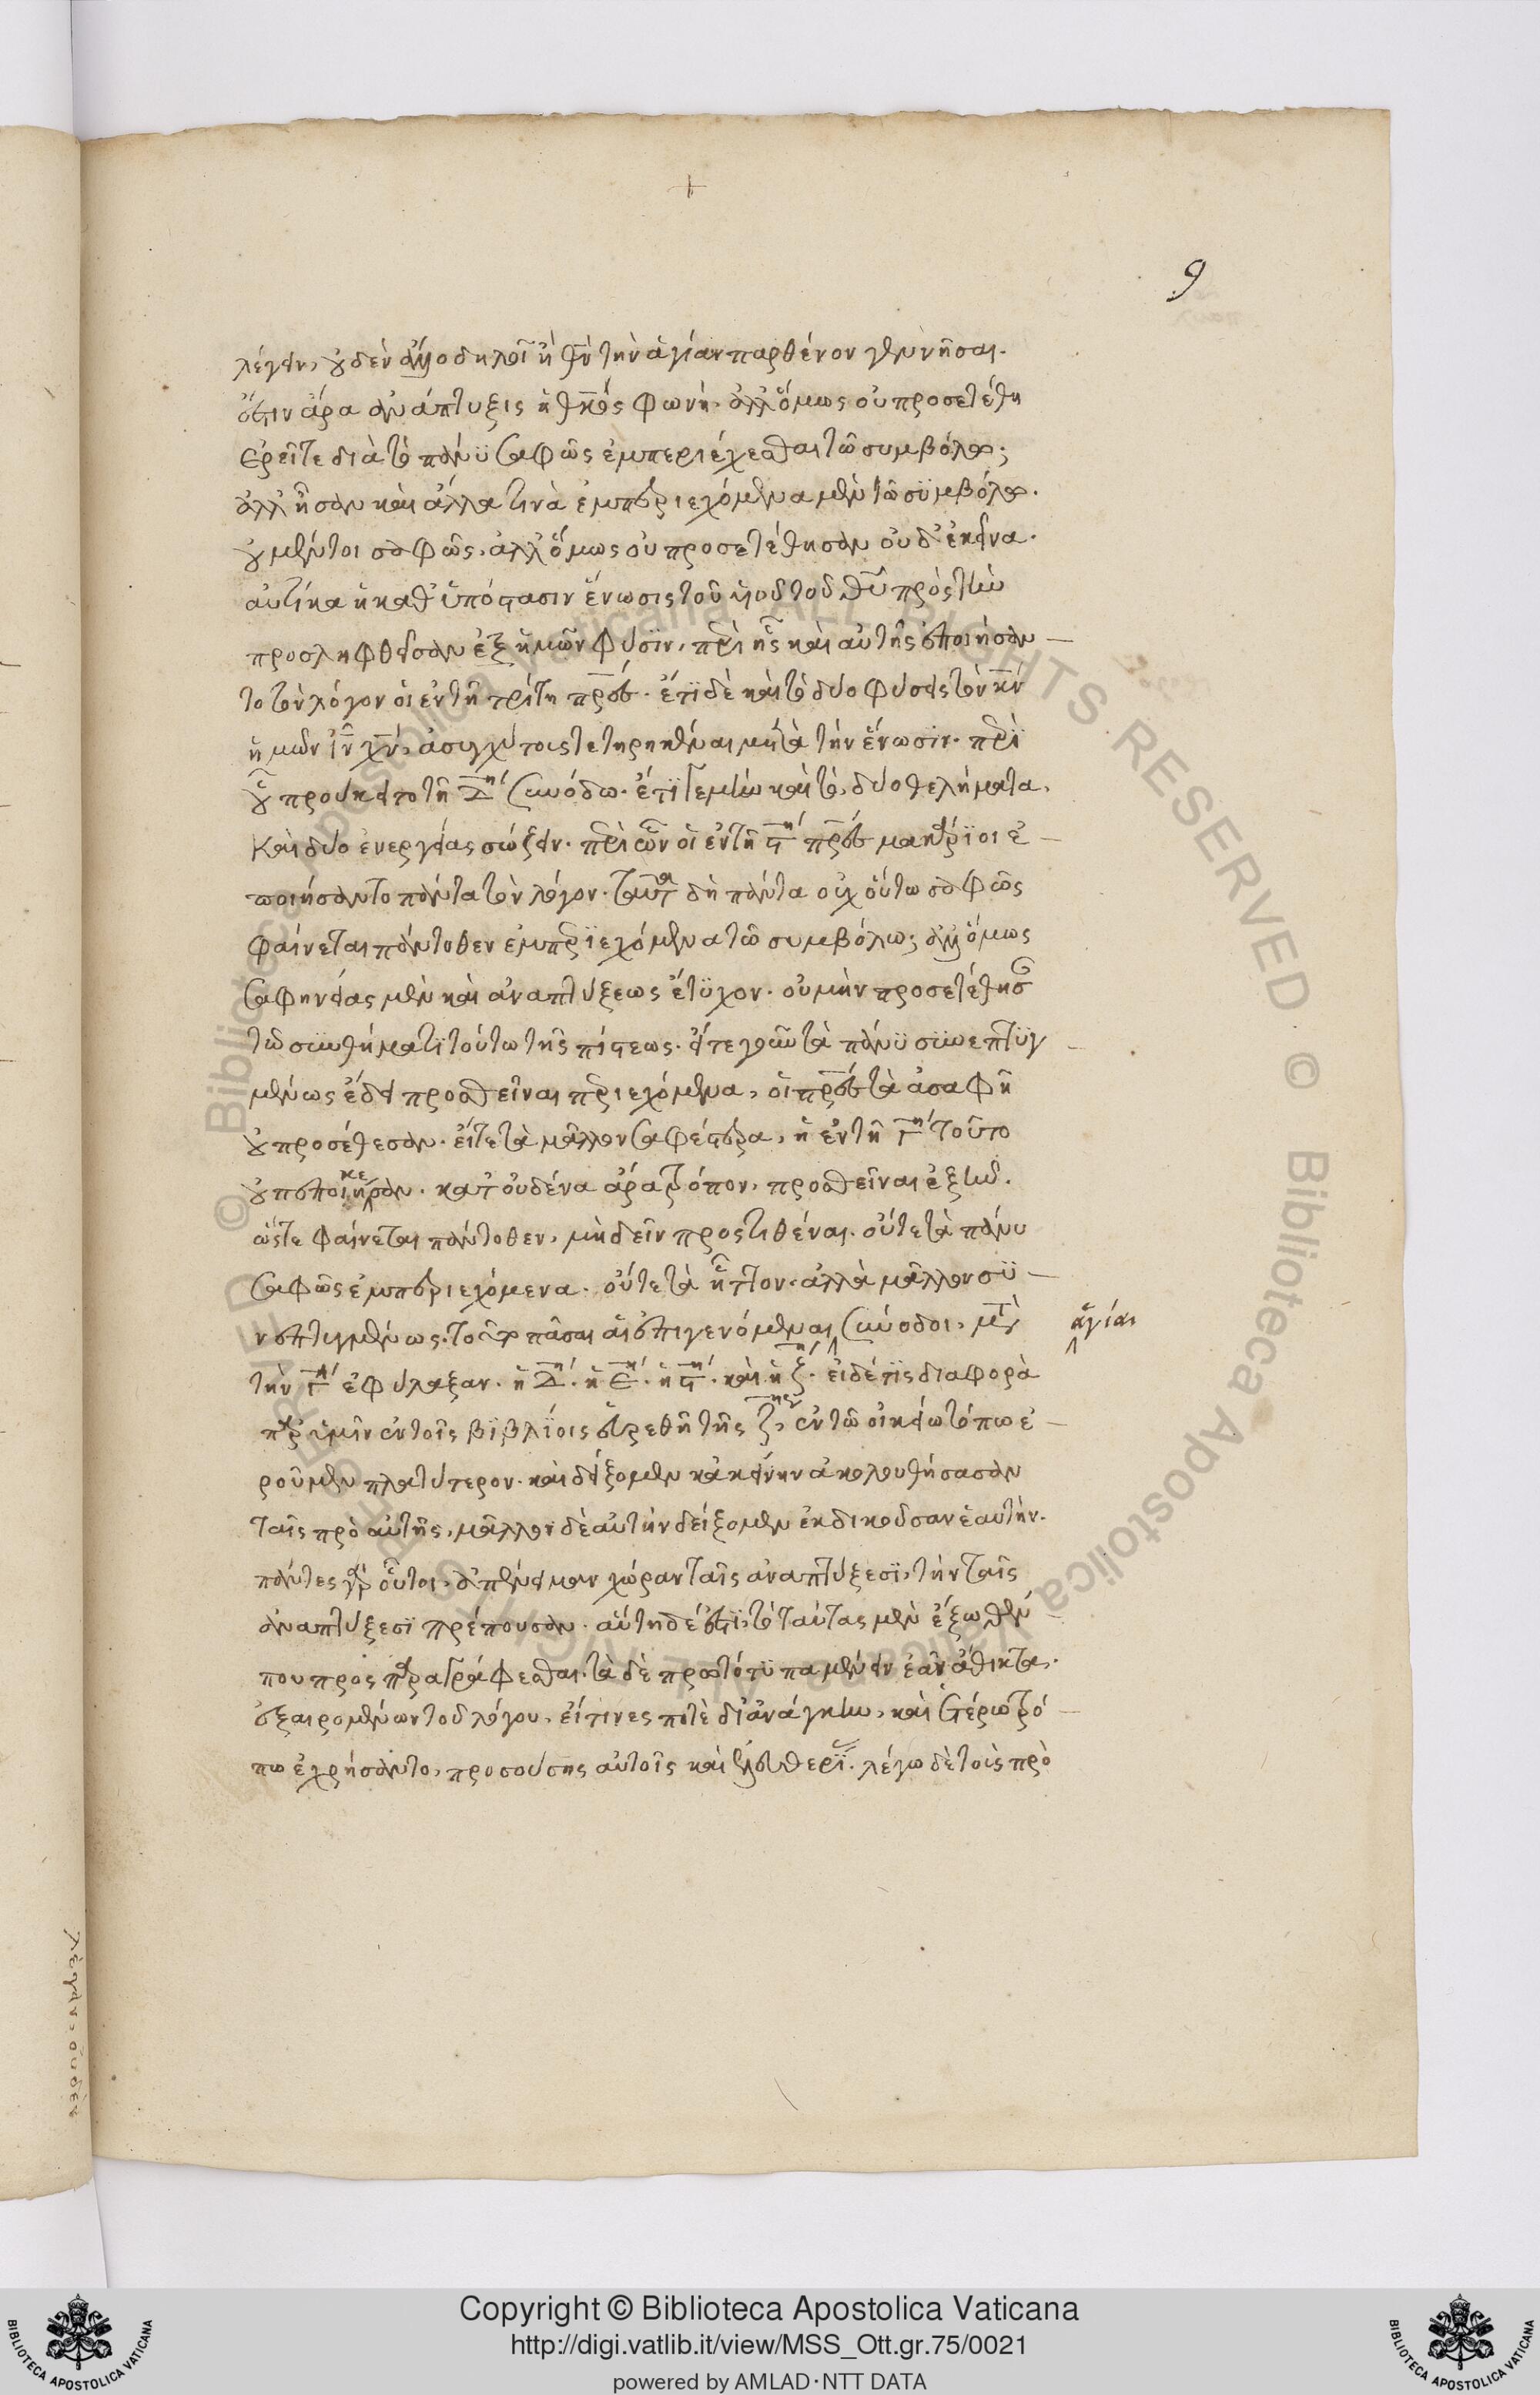 9
λέγειν, οὐδὲν ἄλλο δηλοῖ ἢ θν τὴν ἁγίαν παρθένον γεννῆσαι.
ἔστιν ἄρα ἀνάπτυξις ἡ θκος φωνή. ἀλλ' ὅμως οὐ προσετέθη
ἐρεῖτε διὰ τὸ πάνϋ σαφῶς ἐμπεριέχεσθαι τῶ συμβόλω;
ἀλλ' ἦσαν καὶ ἄλλα τινὰ ἐμπεριεχόμενα μὲν τῶ συμβόλω.
οὐ μέντοι σαφῶς. ἀλλ' ὅμως οὐ προσετέθησαν οὐδ' ἐκεῖνα.
αὐτίκα ἡ καθ' ὑπόστασιν ἕνωσις τοῦ υἱοῦ τοῦ θυ πρὸς τὴν
προσληφθεῖσαν ἐξ ἡμῶν φύσϊν, περὶ ἧς καὶ αὐτῆς ἐποιήσαν
το τὸν λόγον οἱ ἐν τῆ τρίτη πρσ. ἔτϊ δὲ καὶ τὸ δύο φύσεις τὸν κν
ἡμῶν ιν χν, ἀσυγχύτοις τετηρηκέναι μετὰ τὴν ἕνωσϊν. περὶ
οὗ προὔκειτο τῆ Δη συνόδω. ἔτϊ γε μὴν καὶ τὸ, δύο θελήματα,
καὶ δύο ἐνεργείας σώζειν. περὶ ὧν οἱ ἐν τῆ ϛη πρσ μακάρϊοι ἐ
ποιήσαντο πάντα τὸν λόγον. ταῦτα δὴ πάντα οὐχ οὕτω σαφῶς
φαίνεται πάντοθεν ἐμπερϊεχόμενα τῶ συμβόλω; ἀλλ' ὅμως
σαφηνείας μὲν καὶ ἀναπτύξεως ἔτϋχον. οὐ μὴν προσετέθησαν
τῶ συνθήματϊ τούτω τῆς πίστεως. εἴτε γοῦν τὰ πάνϋ συνεπτϋγ
μένως ἔδει προσθεῖναι περιεχόμενα, οἱ πρσ τὰ ἀσαφῆ
οὐ προσέθεσαν. εἴτε τὰ μᾶλλον σαφέστερα, ἡ ἐν τῆ Γη τοῦτο
οὐ πεποιήκεσαν. κατ' οὐδένα ἄρα τρόπον, προσθεῖναι ἐξὸν.
ὥστε φαίνεται πάντοθεν, μὴ δεῖν προστιθέναι. οὔτε τὰ πάνυ
σαφῶς ἐμπεριεχόμενα. οὔτε τὰ ἧττον. ἀλλὰ μᾶλλον σϋ
νεπτυγμένως. τοῦτο γὰρ πᾶσαι αἱ ἐπιγενόμεναι σύνοδοι, μετὰ
ἅγίαι
τὴν Γη ἐφύλαξαν. ἡ Δη. ἡ Εη. ἡ ϛη. καὶ ἡ ζη. εἰ δέ τϊς διαφορὰ
παρ' ὑμῖν ἐν τοῖς βϊβλΐοις εὑρεθῆ τῆς ζης, ἐν τῶ οἰκείω τόπω ἐ
ροῦμεν πλατύτερον. καὶ δείξομεν κἀκείνην ἀκολουθήσασαν
ταῖς πρὸ αὐτῆς, μᾶλλον δὲ αὐτὴν δείξομεν ἐκδικοῦσαν ἑαυτήν.
πάντες γὰρ οὗτοι, ἀπένειμαν χώραν ταῖς ἀναπτύξεσϊ, τὴν ταῖς
ἀναπτύξεσϊ πρέπουσαν. αὕτη δέ ἐστϊ, τὸ ταύτας μὲν ἔξωθέν
που προς παραγράφεσθαι. τὰ δὲ πρωτότϋπα μένειν ἐᾶν ἄθικτα.
ἐξαιρομένων τοῦ λόγου, εἴ τινες ποτὲ δι' ἀνάγκην, καὶ ἑτέρω τρό
πω ἐχρήσαντο, προσούσης αὐτοῖς καὶ ἐλευθερϊ. λέγω δὲ τοὶς πρὸ
λέγειν, οὐδὲν
Copyright © Biblioteca Apostolica Vaticana
http://digi.vatlib.it/view/MSS_Ott.gr.75/0021
powered by AMLAD·NTT DATA
BIBLIOTECA APOSTOLICA VATICANA
BIBLIOTECA APOSTOLICA VATICANA
© Biblioteca Apostolica Vaticana. ALL RIGHTS RESERVED © Biblioteca Apostolica Vaticana. ALL RIGHTS RESERVED